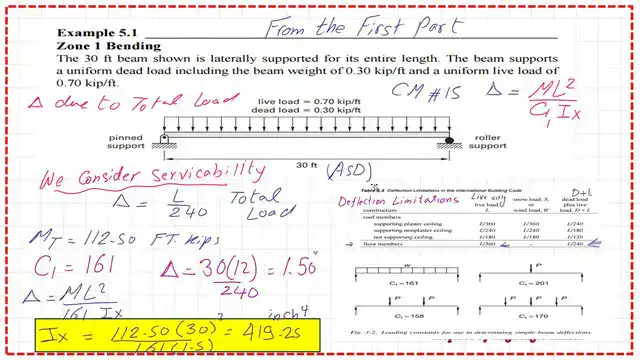 Example 5.1
From the First Part
Zone 1 Bending
The 30 ft beam shown is laterally supported for its entire length. The beam supports
a uniform dead load including the beam weight of 0.30 kip/ft and a uniform live load of
0.70 kip/ft.
CM #15
Δ = ML²
C₁ Ix
Δ due to Total Load
live load = 0.70 kip/ft
dead load = 0.30 kip/ft
pinned
support
roller
support
30 ft
(ASD)
We Consider Servicability
Δ = L
240
Total
Load
Table 5.2 Deflection Limitations in the International Building Code
Deflection Limitations
Live only
D+L
construction
live load,
L
snow load, S,
or
wind load, W
dead load
plus live
load, D + L
roof members:
supporting plaster ceiling L/360 L/360 L/240
supporting nonplaster ceiling L/240 L/240 L/180
not supporting ceiling L/180 L/180 L/120
floor members L/360 - L/240
MT = 112.50 FT. kips
C₁ = 161
Δ = 30(12) = 1.50"
240
Δ = ML²
161 Ix
inch⁴
Ix = 112.50(30)² = 419.25
161(1.5)
w
C₁ = 161
P
C₁ = 201
P P
C₁ = 158
P P P
C₁ = 170
Fig. 3-2. Loading constants for use in determining simple beam deflections.